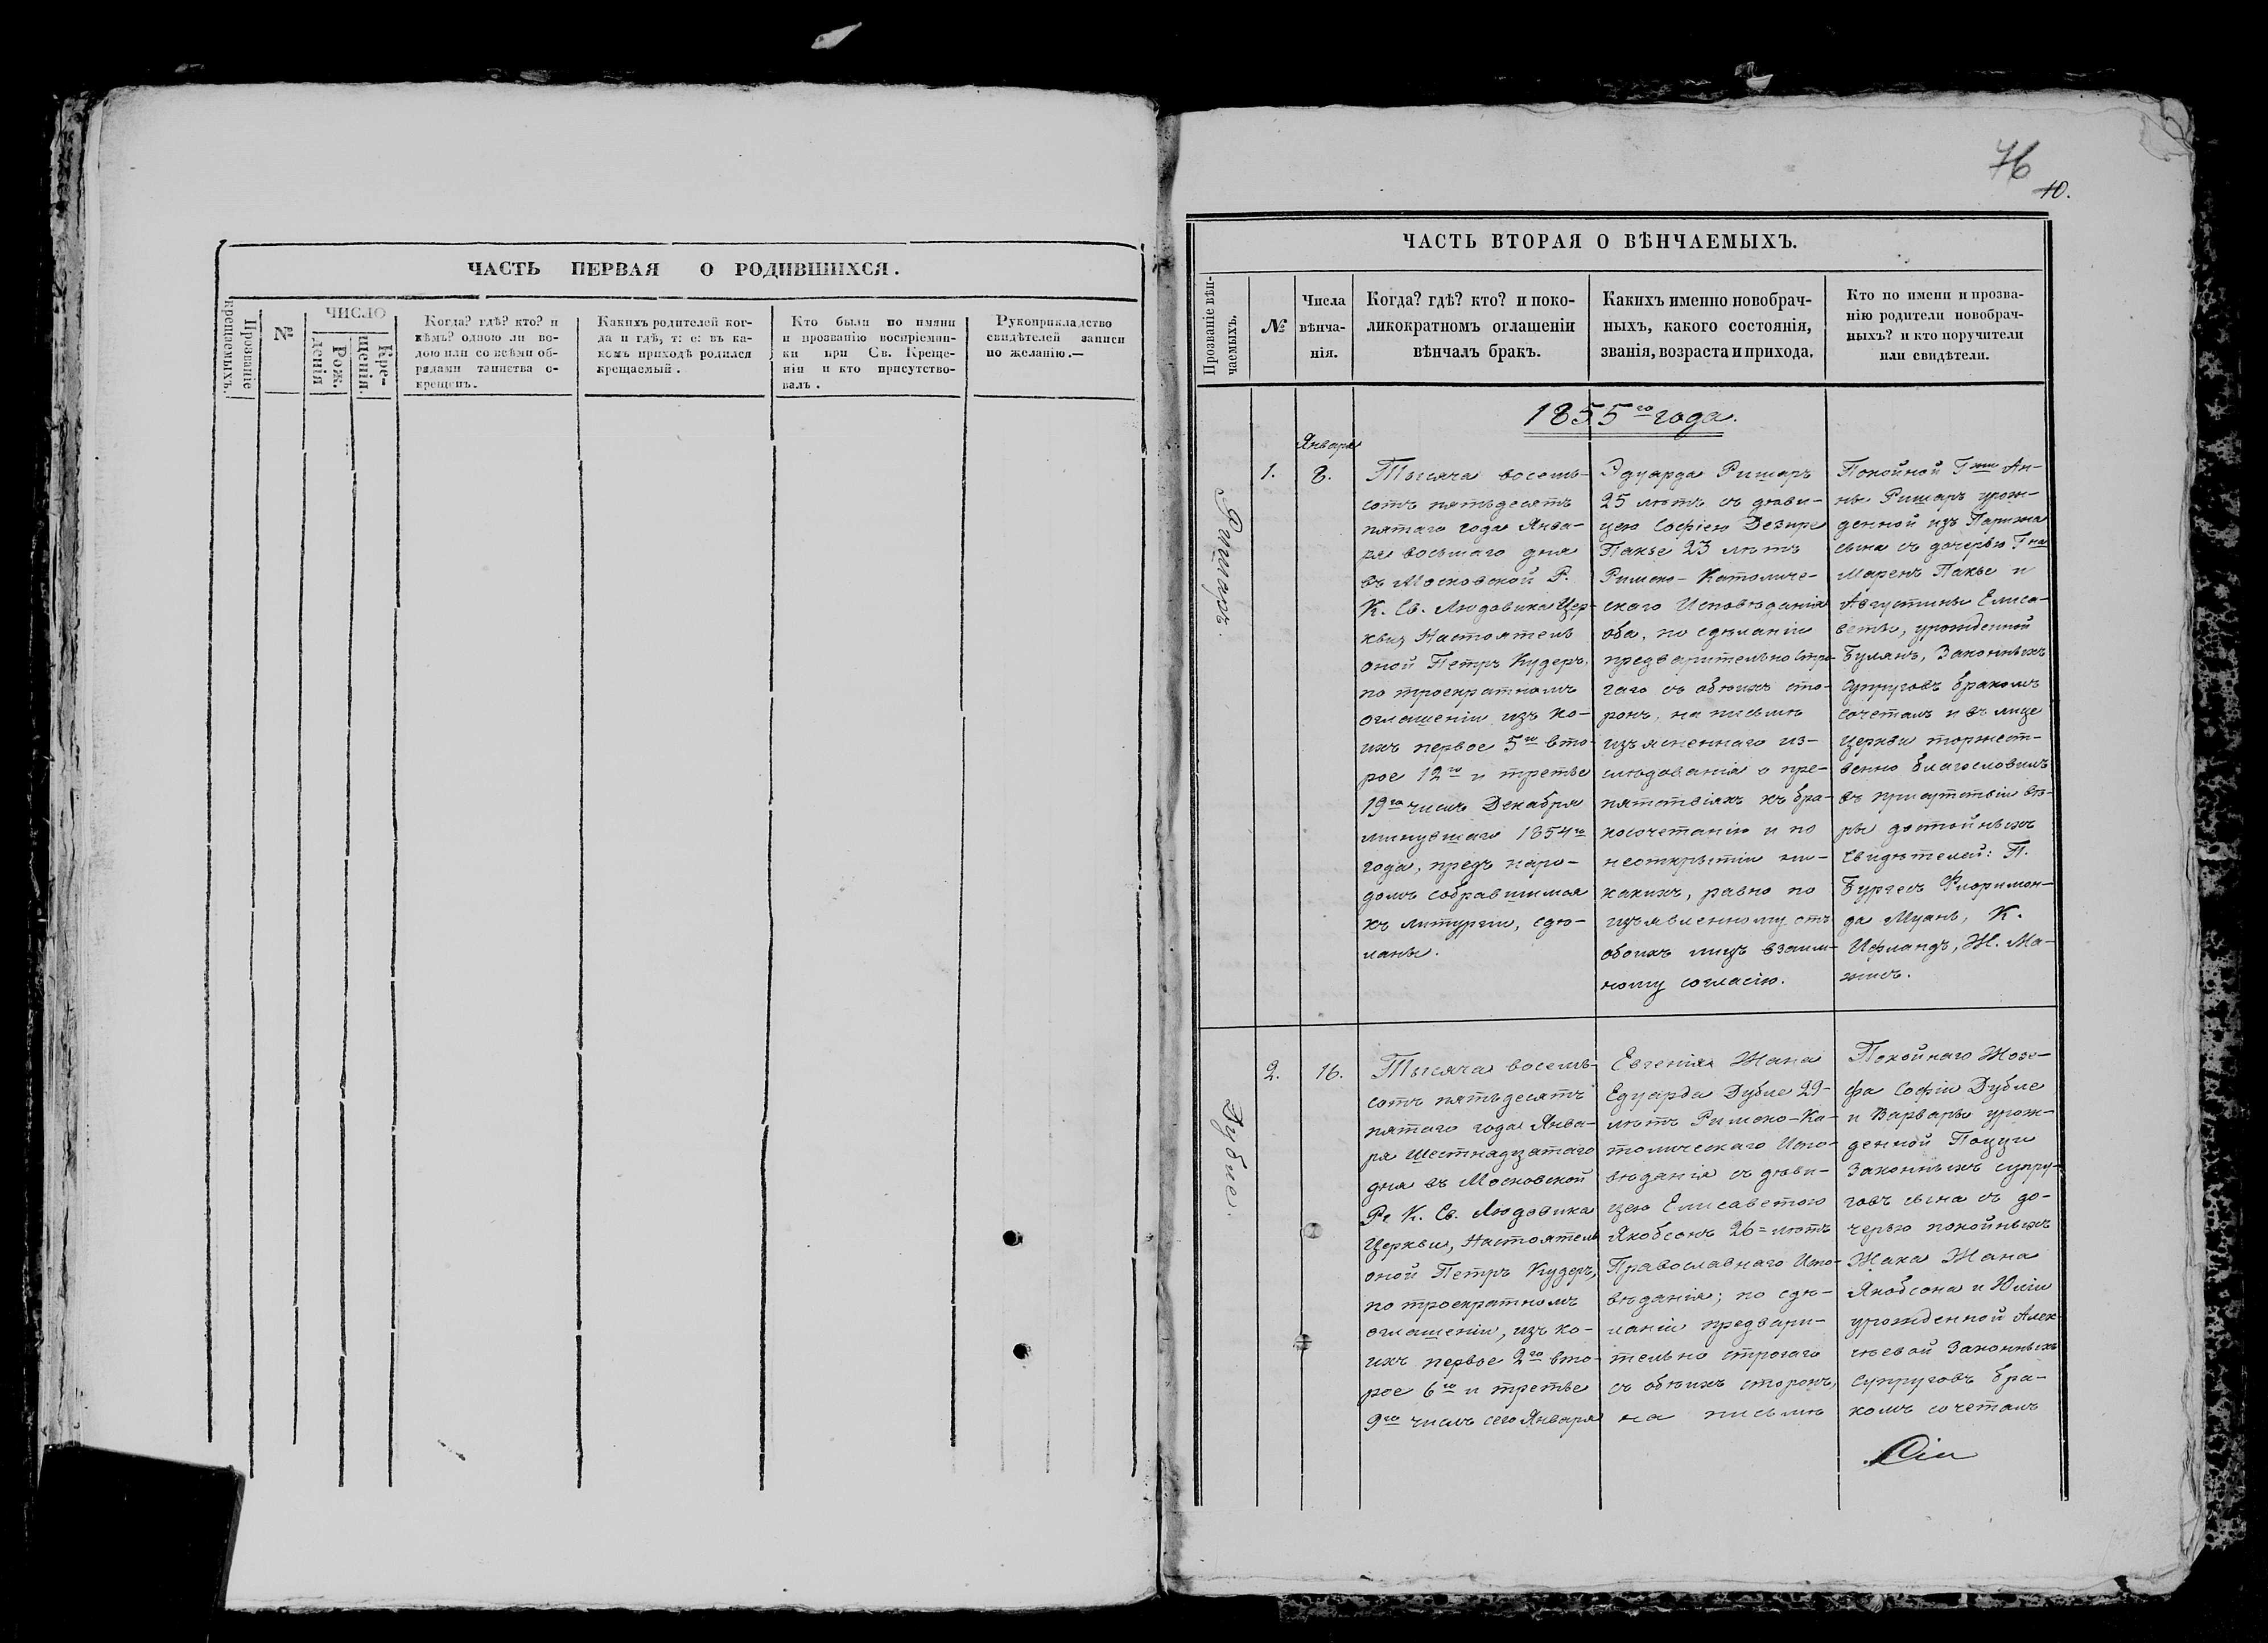 ЧАСТЬ ПЕРВАЯ О РОДИВШИХСЯ.
Прозваніе
крещаемыхъ.
№
ЧИСЛО
Рож.
денія
Кре-
щенія.
Когда? гдѣ? кто? и
кѣмъ? одною ли во-
дою или со всѣми об-
рядами таинства о-
крещенъ.
Какихъ родителей ког-
да и гдѣ, т: е: въ ка-
комъ приходѣ родился
крещаемый.
Кто были по имяни
и прозванію воспріемни-
ки при Св. Креще-
ніи и кто присутство-
валъ.
Рукоприкладство
свидѣтелей записи
по желанію.—
76
10.
ЧАСТЬ ВТОРАЯ О ВѢНЧАЕМЫХЪ.
Прозваніе вѣн-
чаемыхъ.
№
Числа
вѣнча-
нія.
Когда? гдѣ? кто? и поко-
ликократномъ оглашеніи
вѣнчалъ бракъ.
Какихъ именно новобрач-
ныхъ, какого состоянія,
званія, возраста и прихода.
Кто по имени и прозва-
нію родители новобрач-
ныхъ? и кто поручители
или свидѣтели.
1855го года.
Ришаръ.
1.
Января
8.
Тысяча восемь-
сотъ пятьдесятъ
пятаго года Янва-
ря восьмаго дня
въ Московской Р.
К. Св. Людовика Цер-
кви, Настоятель
оной Петръ Кудеръ,
по троекратномъ
оглашеніи изъ ко-
ихъ первое 5го вто-
рое 12го и третье
19го числъ Декабря
минувшаго 1854го
года, предъ наро-
домъ собравшимся
къ литургіи, сдѣ-
ланы.
Эдуарда Ришаръ
25 лѣтъ съ дѣви-
цею Софіею Дезире
Пакье 23 лѣтъ
Римско-Католиче-
скаго Исповѣданія
оба, по сдѣланіи
предварительно стро-
гаго съ обѣихъ сто-
ронъ, на письмѣ
изъясненнаго из-
слѣдованія о пре-
пятствіяхъ къ бра-
косочетанію и по
неоткрытіи ни-
какихъ, равно по
изъявленному отъ
обоихъ лицъ взаим-
ному согласію.
Покойной Гжи Ан-
ны Ришаръ урож-
денной изъ Парижа
сына съ дочерью Гна
Маренъ Пакье и
Августины Елиса-
веты, урожденной
Буланъ, Законныхъ
супруговъ бракомъ
сочеталъ и въ лице
церкви торжест-
венно благословилъ
въ присутствіи вѣ-
ры достойныхъ
Свидѣтелей: П.
Бургесъ Флоримон-
да Муанъ, К.
Ифландъ, Ж. Ма-
Дубле.
2.
16.
Тысяча восемь-
сотъ пятьдесятъ
пятаго года Янва-
ря шестнадцатаго
дня въ Московской
Р. К. Св. Людовика
Церкви, Настоятель
оной Петръ Кудеръ,
по троекратномъ
оглашеніи, изъ ко-
ихъ первое 2го вто-
рое 6го и третье
9го числъ сего Января
Евгенія Жана
Едуарда Дубле 29-
лѣтъ Римско-Ка-
толическаго Испо-
вѣданія съ дѣви-
цею Елисаветою
Якобсонъ 26= лѣтъ
Православнаго Испо-
вѣданія; по сдѣ-
ланіи предвари-
тельно строгаго
съ обѣихъ сторонъ,
на письмѣ
Покойнаго Жозе-
фа Софіи Дубле
и Варвары урож-
денной Поцци
Законныхъ супру-
говъ сына съ до-
черью покойныхъ
Жака Жана
Якобсона и Юліи
урожденной Алек-
сѣевой Законныхъ
супруговъ бра-
комъ сочеталъ